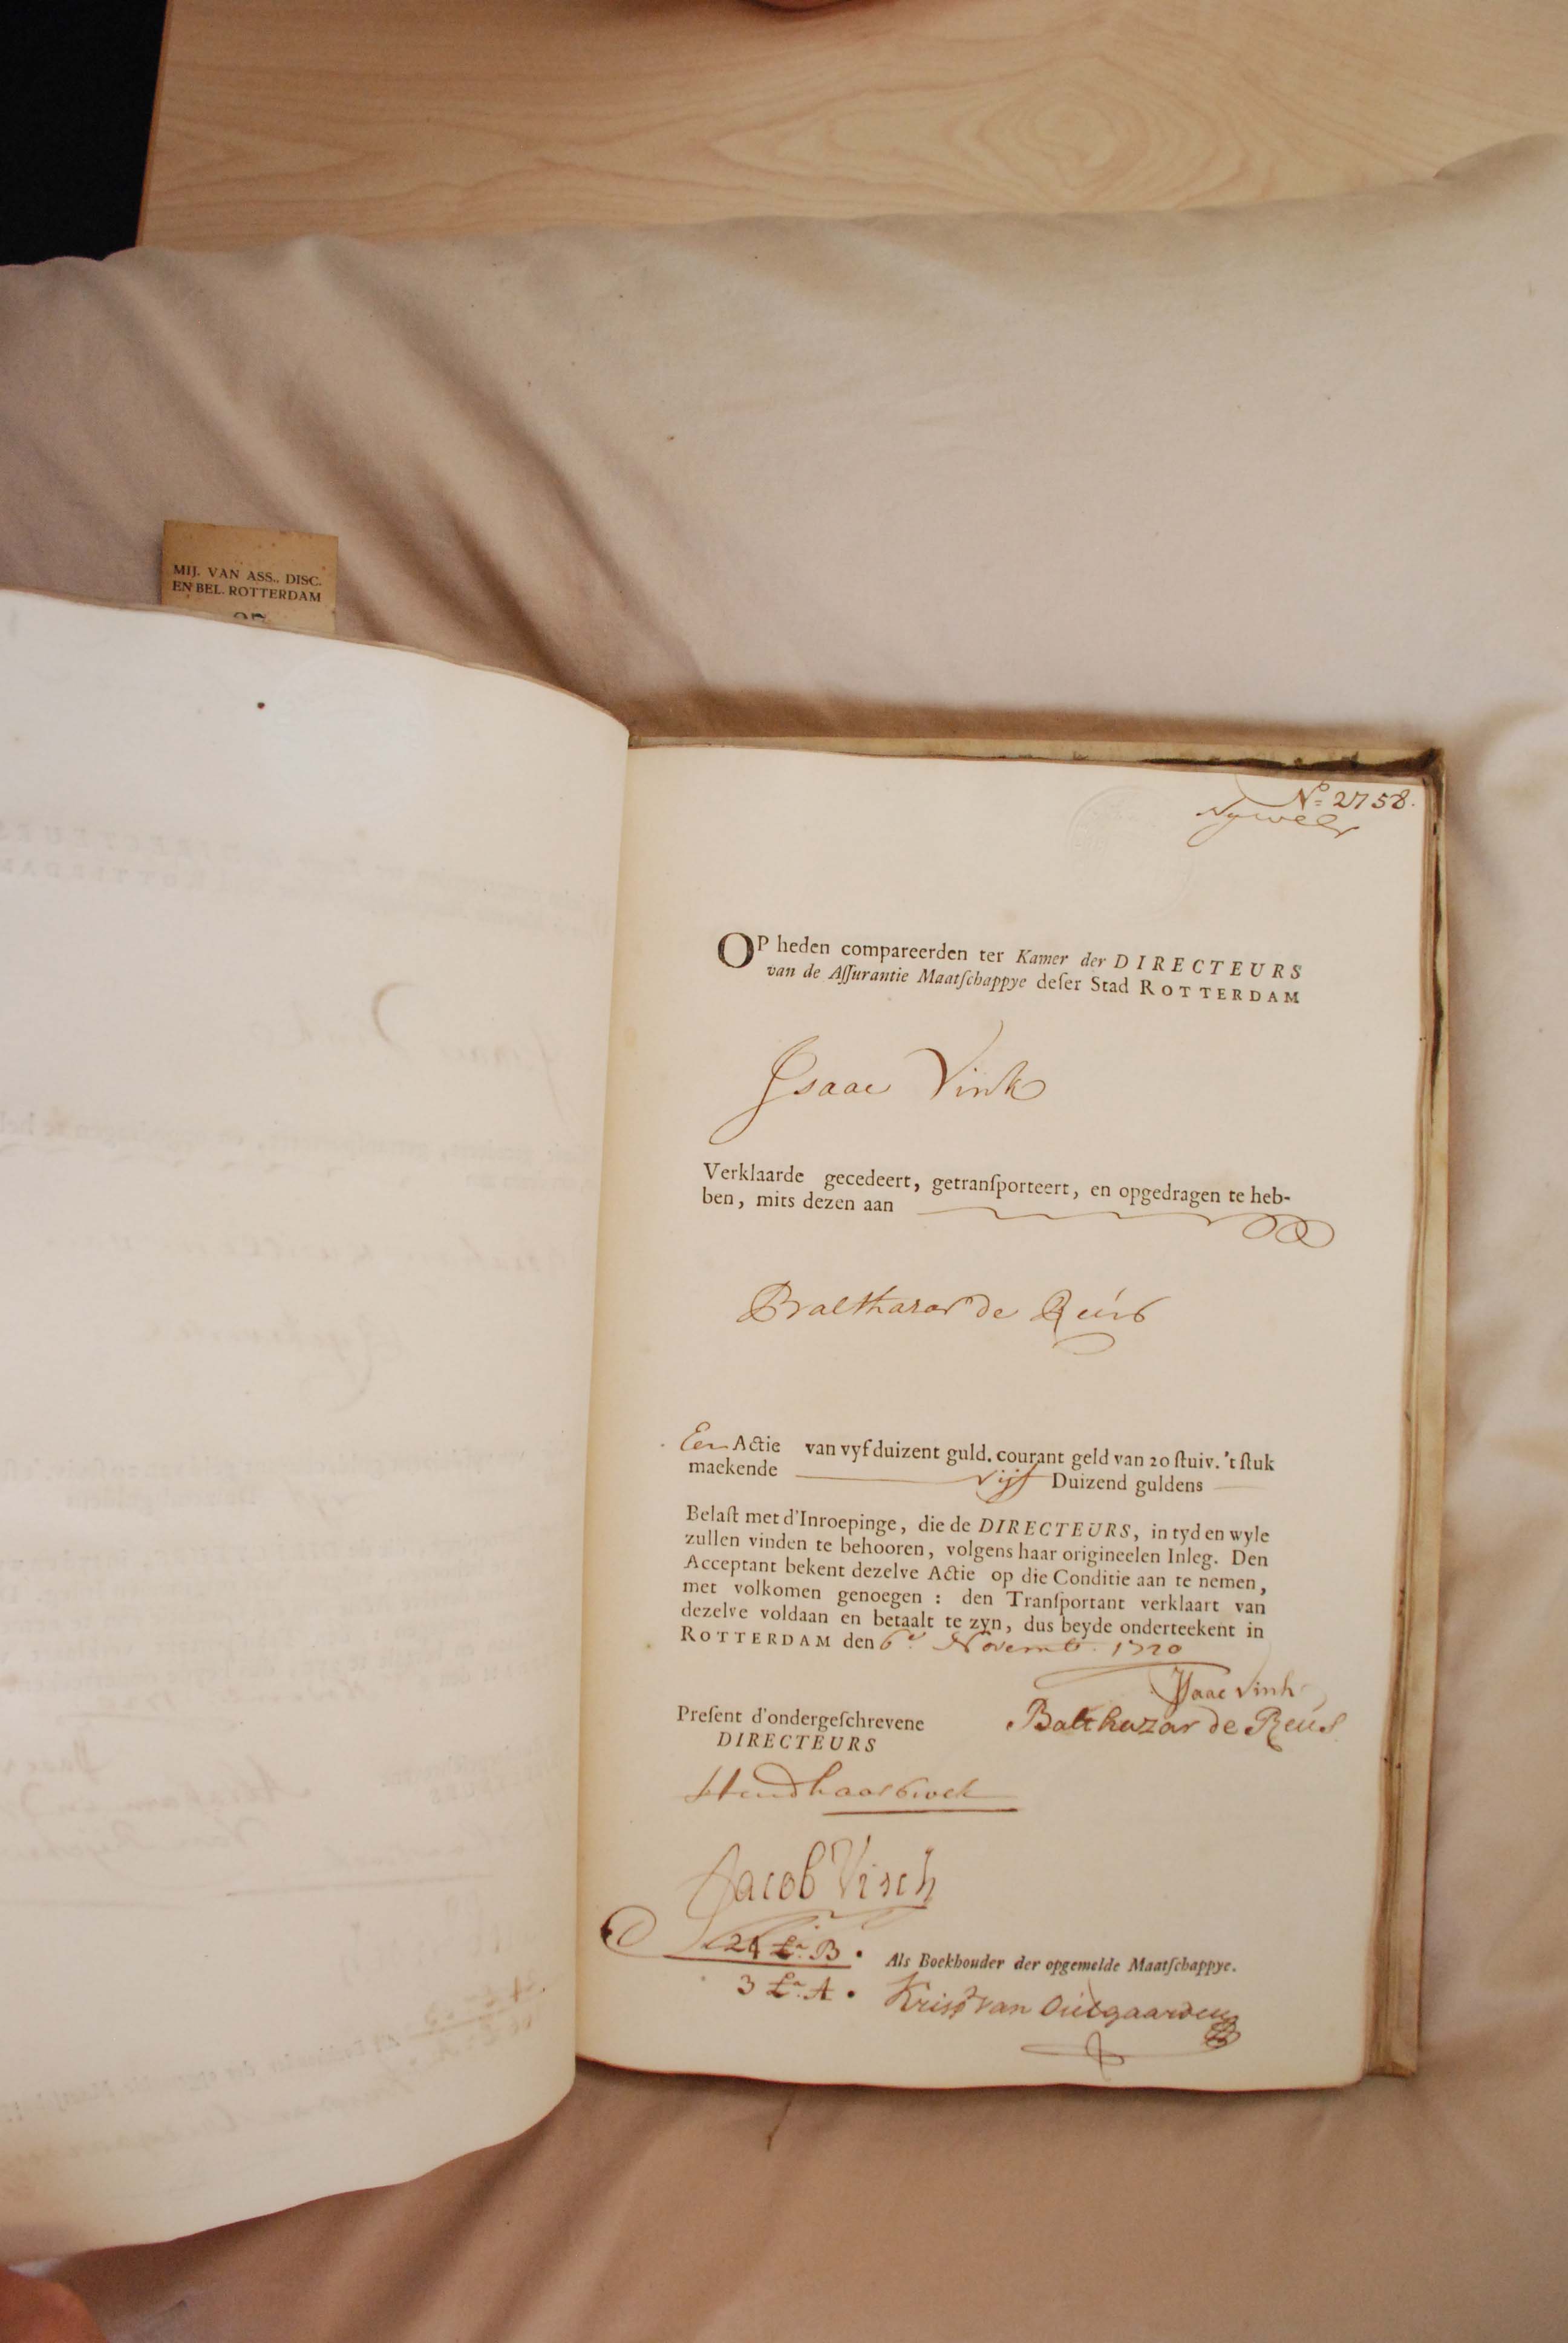 MIJ. VAN ASS., DISC.
EN BEL. ROTTERDAM
No 2758.
OP heden compareerden ter Kamer der DIRECTEURS
van de Aſſurantie Maatſchappye deſer Stad ROTTERDAM
Isaac Vink
Verklaarde gecedeert, getranſporteert, en opgedragen te heb-
ben, mits dezen aan
Balthasar de Reus
Een Actie van vyf duizent guld. courant geld van 20 ſtuiv. 't ſtuk
maekende vijf Duizend guldens
Belaſt met d'Inroepinge, die de DIRECTEURS, in tyd en wyle
zullen vinden te behooren, volgens haar origineelen Inleg. Den
Acceptant bekent dezelve Actie op die Conditie aan te nemen,
met volkomen genoegen : den Tranſportant verklaart van
dezelve voldaan en betaalt te zyn, dus beyde onderteekent in
ROTTERDAM den 6e Novemb. 1720
Isaac Vink
Preſent d'ondergeſchrevene Balthazar de Reus
DIRECTEURS
Jacob Visch
24 La B.
Als Boekhouder der opgemelde Maatſchappye.
3 La A. Krist van Outgaarden